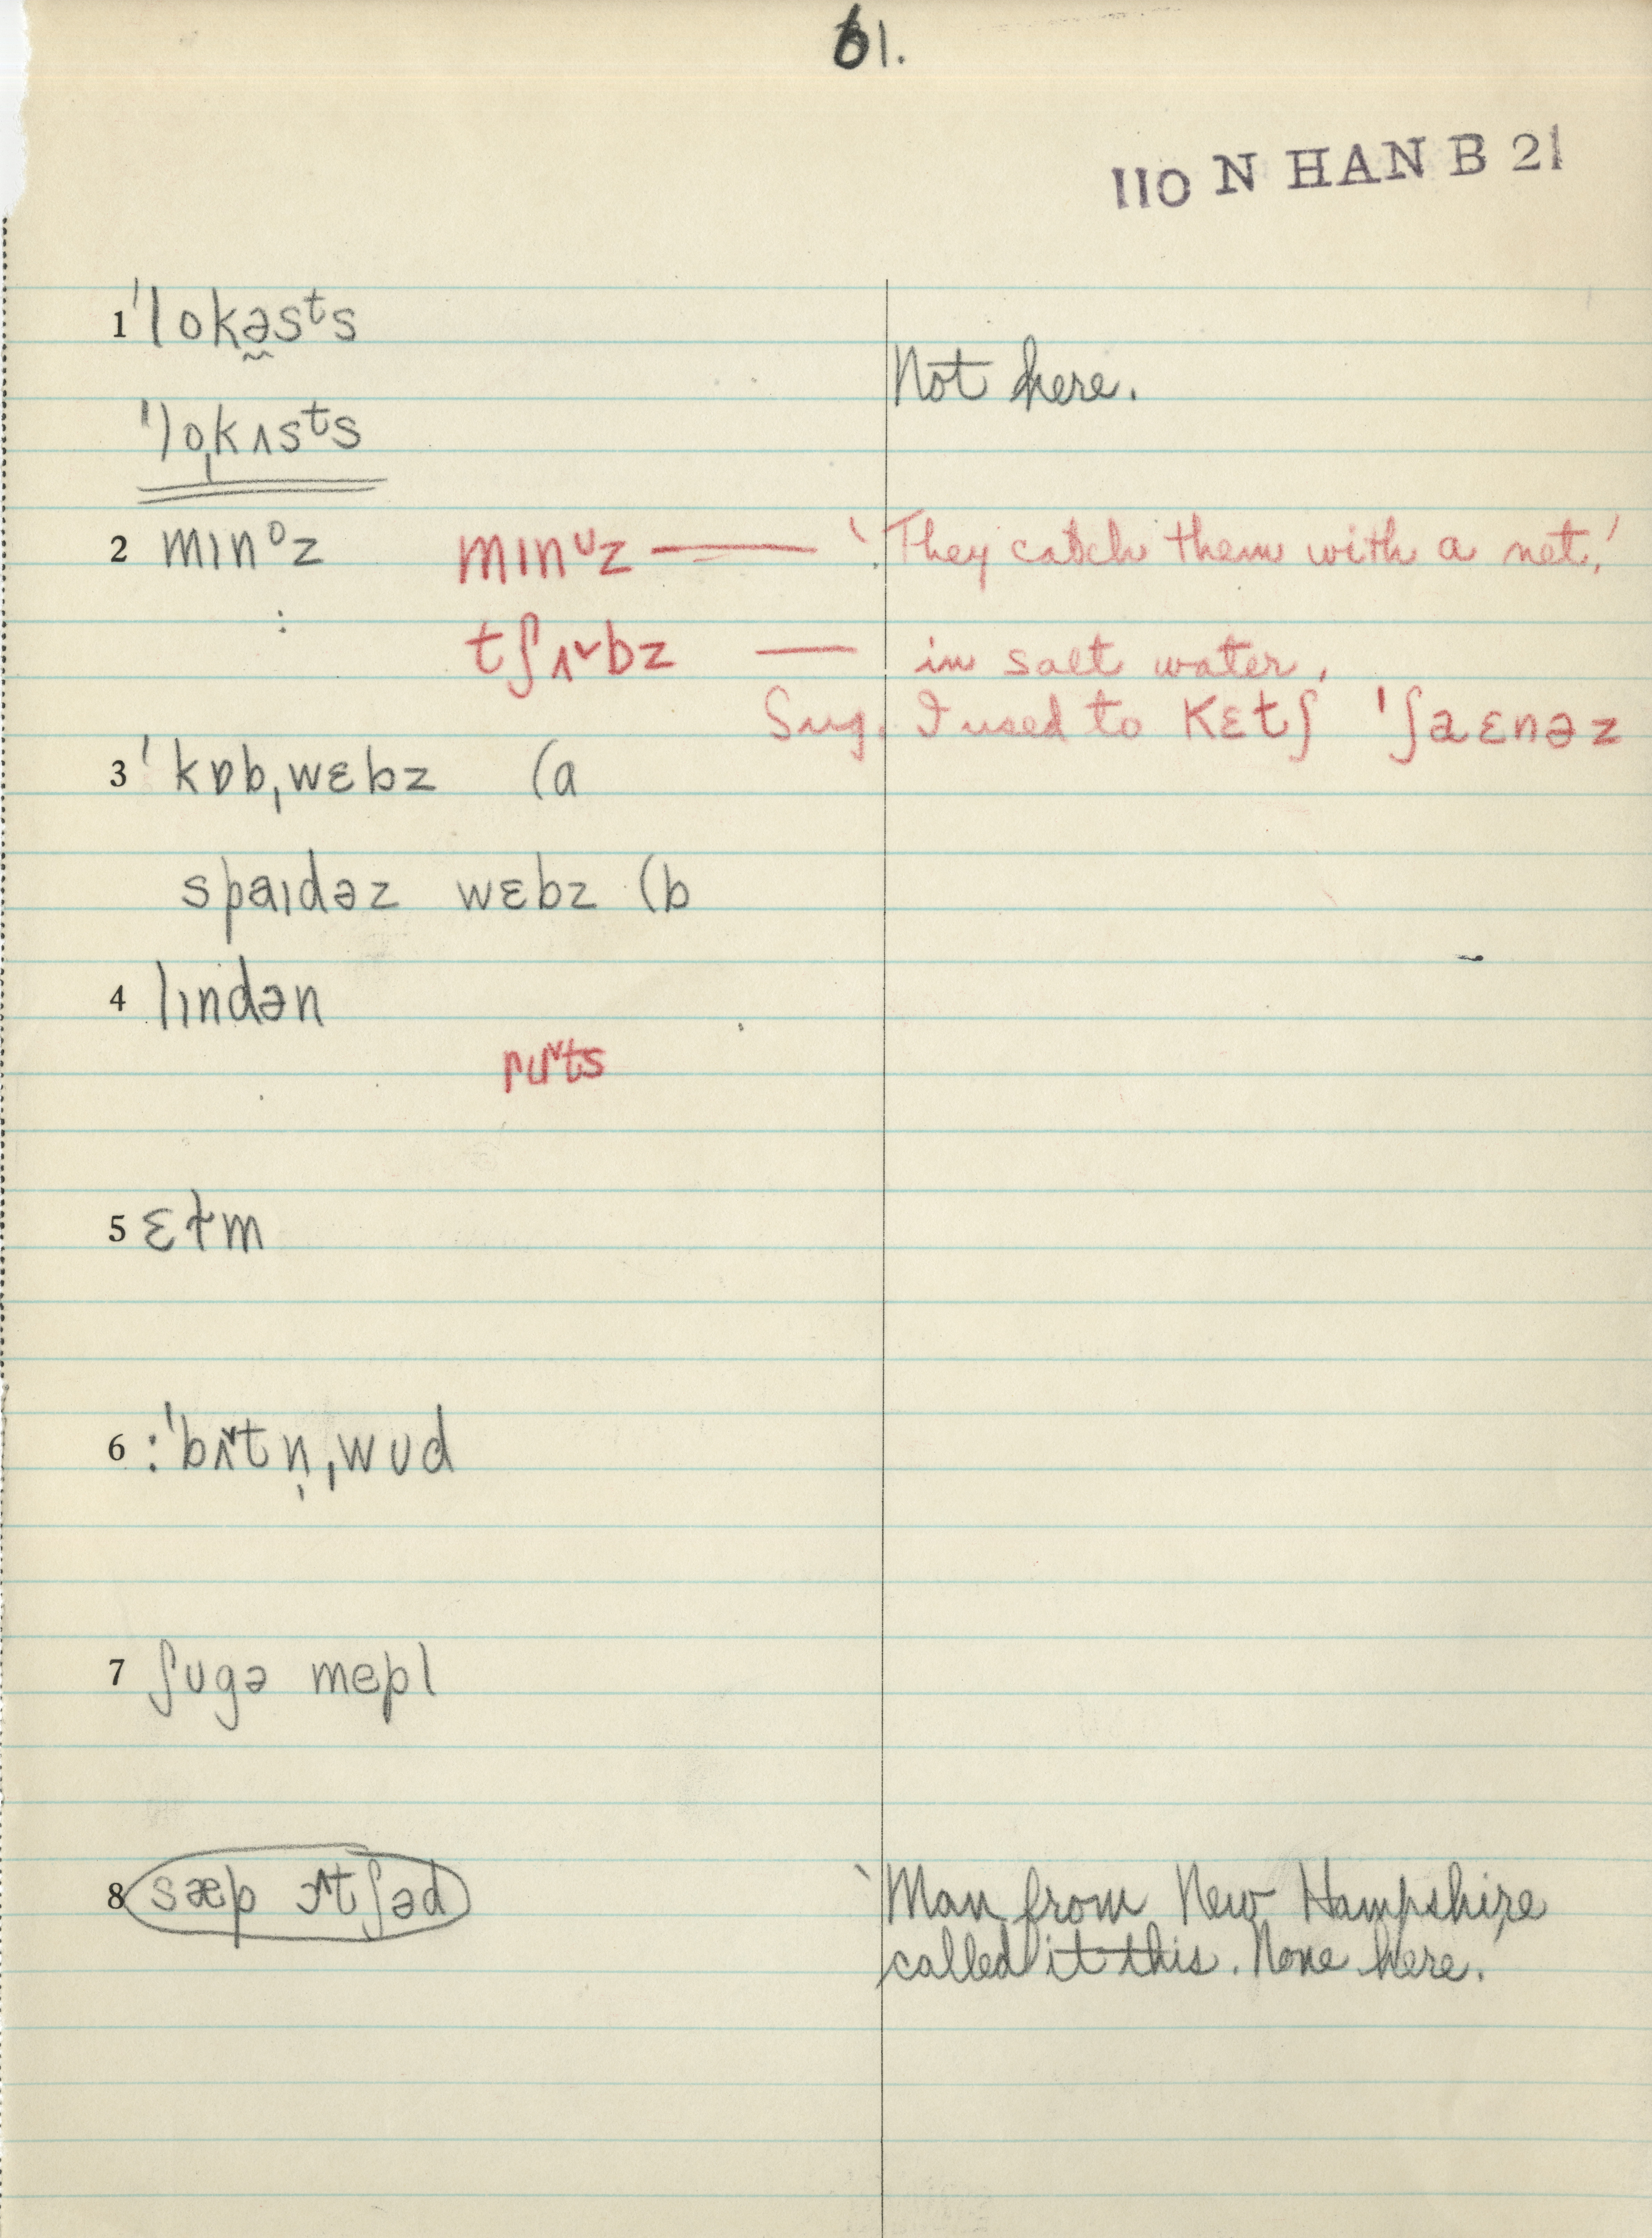 61.
110 N HAN B 21
1 ˈlokə̰sᵗs
Not here.
ˈlo̩kʌsᵗs
2 mɪnᴼz mɪnᶸz — 'They catch them with a net.'
: tʃʌ˅bz — in salt water.
Sug. I used to kɛtʃ ˈʃaɛnəz
3 ˈkɒbˌwɛbz (a
spaɪdəz wɛbz (b
4 lɪndən
ru˅ts
5 ɛɫm
6 :ˈbʌ˅tn̩ˌwʊd
7 ʃʊgə mepl
8 sæp ɔ^tʃəd 'Man from New Hampshire
called it this. None here.'